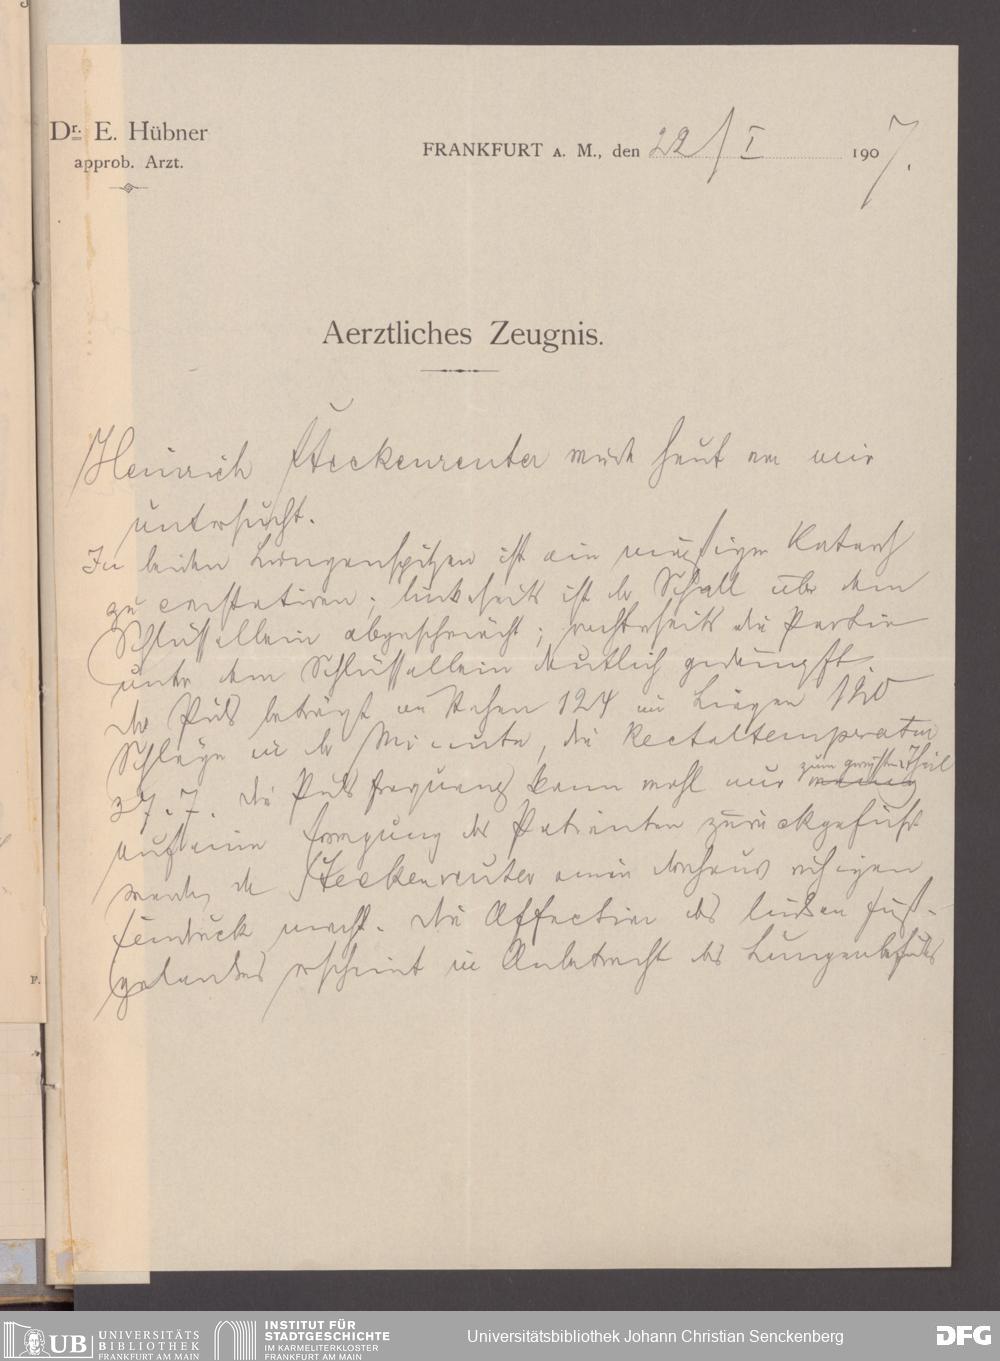 Dr. E. Hübner
approb. Arzt.
FRANKFURT A. M., den 22/I 1907.
Aerztliches Zeugnis.
Heinrich Steckenreuter wurde heut von mir
untersucht.
In beiden Lungenspitzen ist ein mässiger Katarrh
zu constatiren; linkerseits ist der Schall über dem
Schlüsselbein abgeschwächt; rechterseits die Partie
unter dem Schlüsselbein deutlich gedämpft.
Der Puls beträgt im Stehen 124 im Liegen 120
Schläge in der Minute, die Rectaltemperatur
37.7. Die Pulsfrequenz kann wohl nur zum geringsten Theil
auf eine Erregung des Patienten zurückgeführt
werden, da Steckenreuter einen durchaus ruhigen
Eindruck macht. Die Affection des linken Fuß-
gelenkes erscheint in Anbetracht des Lungenbefundes
F.
UB UNIVERSITÄTS
BIBLIOTHEK
FRANKFURT AM MAIN
INSTITUT FÜR
STADTGESCHICHTE
IM KARMELITERKLOSTER
FRANKFURT AM MAIN
Universitätsbibliothek Johann Christian Senckenberg
DFG